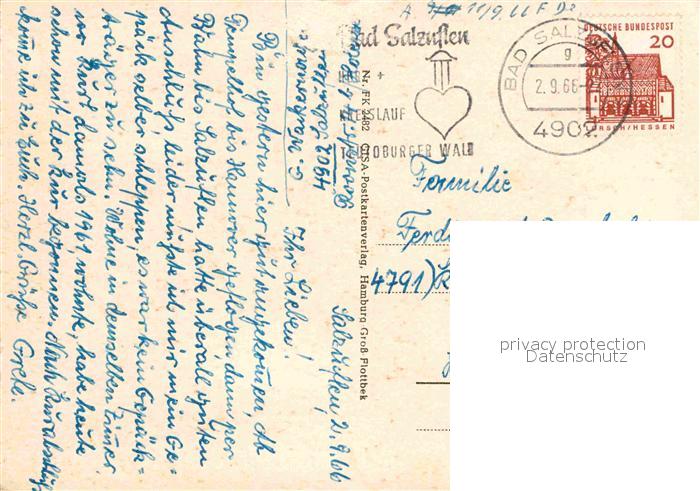 A 11/9.66 F D
Bad Salzuflen
HERZ +
KREISLAUF
TEUTOBURGER WALD
BAD SALZUFLEN
g
2.9.66
4902
DEUTSCHE BUNDESPOST
20
LORSCH/HESSEN
Familie
Ferd
4791)
Nr. FK 3482 CISA-Postkartenverlag, Hamburg Groß Flottbek
4902 Salzuflen
Salzuflen, 2.9.66
Ihr Lieben!
Bin gestern hier gut angekommen, ab
Tempelhof bis Hannover geflogen, dann per
Bahn bis Salzuflen, hatte überall guten
Anschluß, leider mußte ich mir mein Ge-
päck selbst schleppen, es war kein Gepäck-
träger zu sehn. Wohne in demselben Zimmer
wo Kurt damals 1961 wohnte, habe heute
schon mit der Kur begonnen. Nach Kurabschluß
komme ich zu Euch. Herzl. Grüße Grete.
privacy protection
Datenschutz